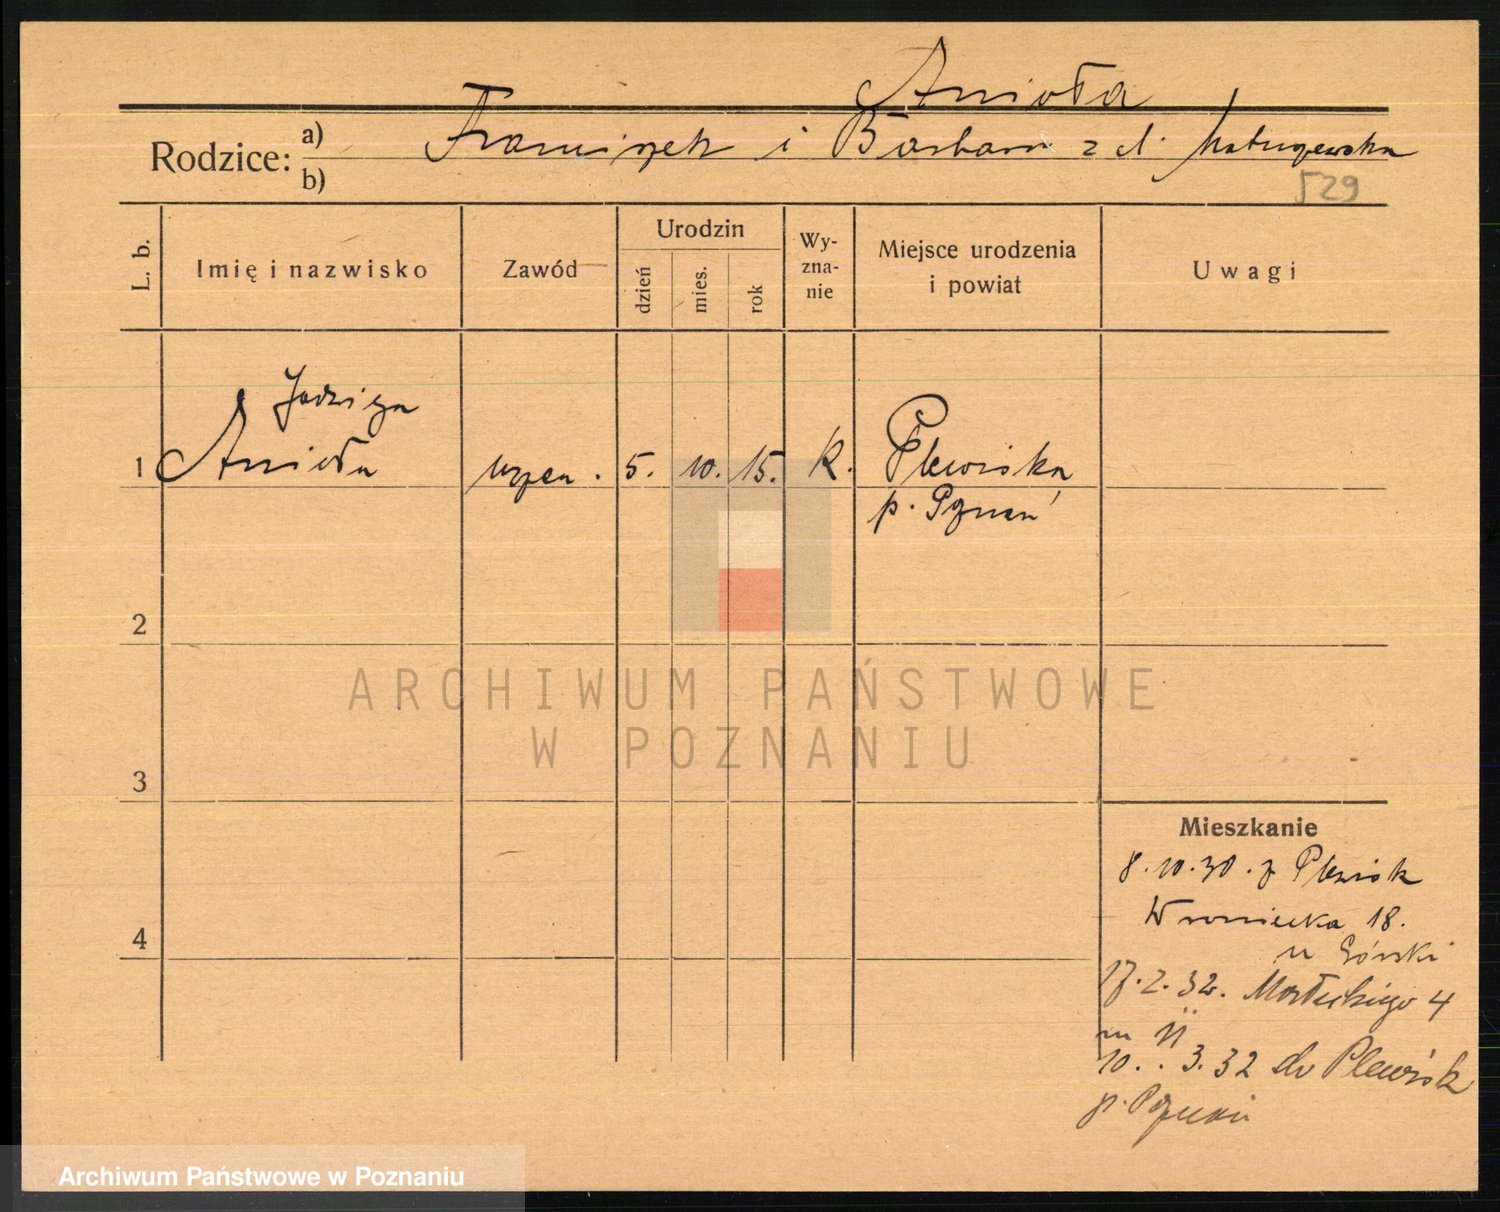 Anioła
Rodzice: a) b)
Franciszek i Barbara z d. Matuszewska
529
L. b.
Imię i nazwisko
Zawód
Urodzin
dzień
mies.
rok
Wy-
zna-
nie
Miejsce urodzenia
i powiat
Uwagi
Jadwiga
1 Anioła 5. 10. 15. K. Plewiska
p. Poznań
2
ARCHIWUM PAŃSTWOWE
W POZNANIU
3
Mieszkanie
8.10.30. z Plewisk
Wroniecka 18.
u Górski
4
17.2.32. 4
10. . 3.32 do Plewisk
p. Poznań
Archiwum Państwowe w Poznaniu